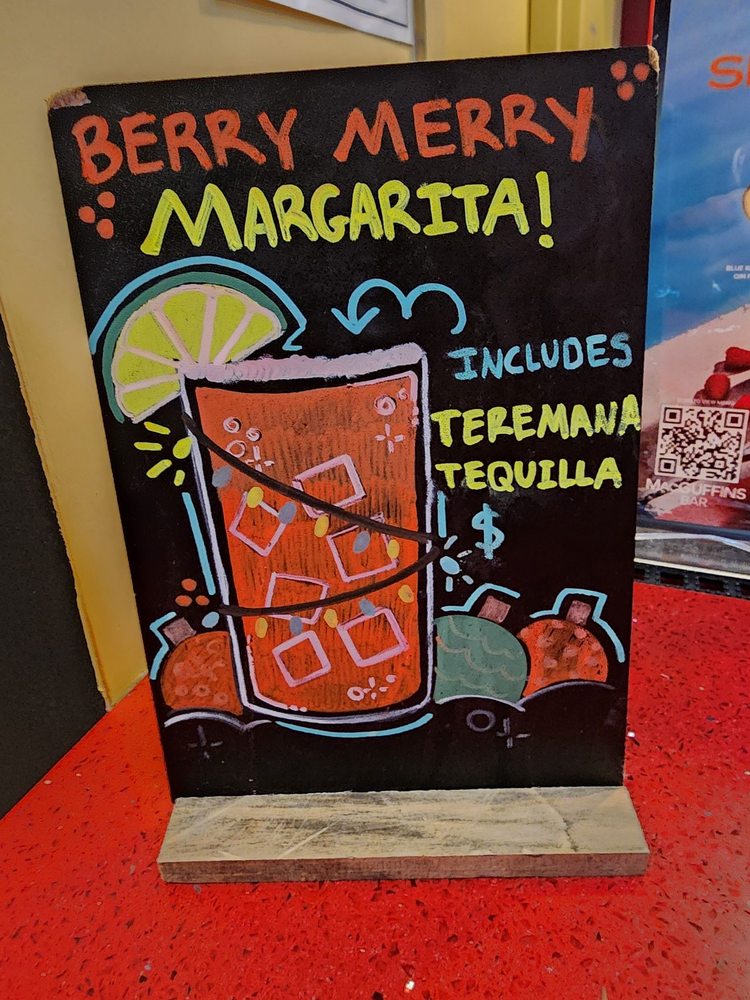 BERRY MERRY
MARGARITA!
INCLUDES
TEREMANA
TEQUILLA
$
MACGUFFINS
BAR